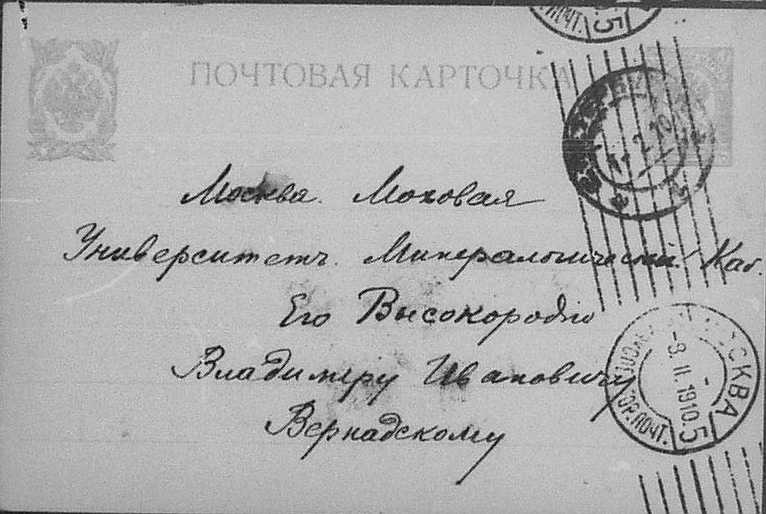 ПОЧТОВАЯ КАРТОЧКА
Москва. Моховая
Университетъ. Минералогическiй Каб.
Его Высокородiю
Владимiру Ивановичу
Вернадскому
МОСКВА
-9. II. 1910. 5
ГОР. ПОЧТ.